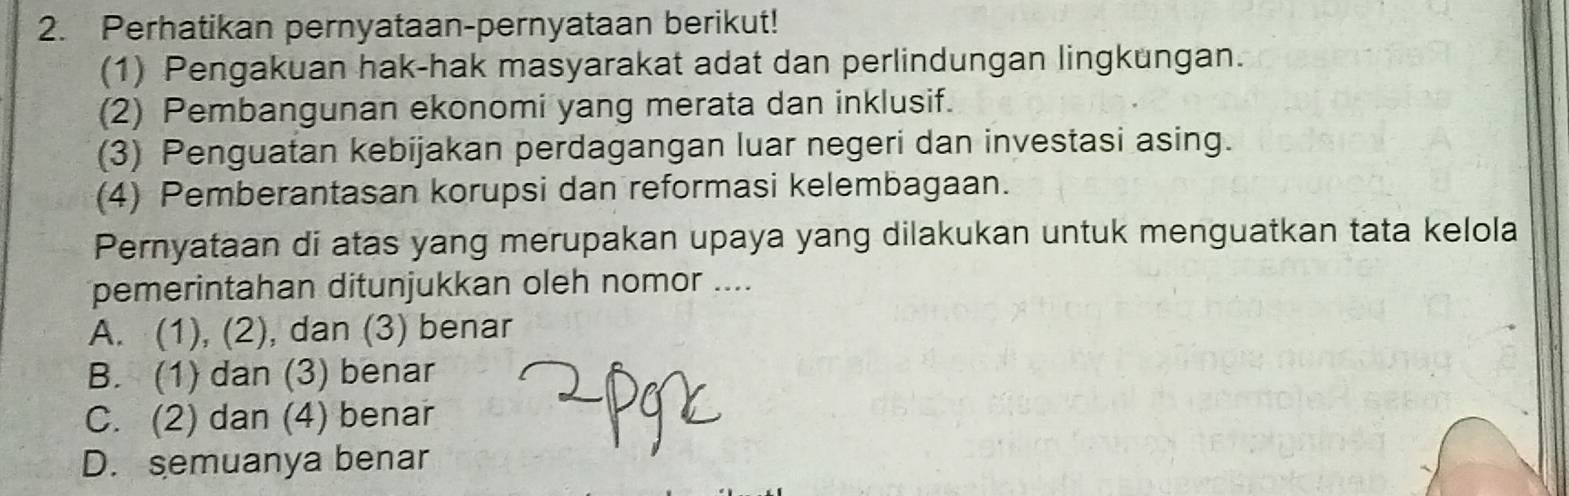 2. Perhatikan pernyataan-pernyataan berikut!
(1) Pengakuan hak-hak masyarakat adat dan perlindungan lingkungan.
(2) Pembangunan ekonomi yang merata dan inklusif.
(3) Penguatan kebijakan perdagangan luar negeri dan investasi asing.
(4) Pemberantasan korupsi dan reformasi kelembagaan.
Pernyataan di atas yang merupakan upaya yang dilakukan untuk menguatkan tata kelola
pemerintahan ditunjukkan oleh nomor ....
A. (1), (2), dan (3) benar
B. (1) dan (3) benar
C. (2) dan (4) benar
D. semuanya benar